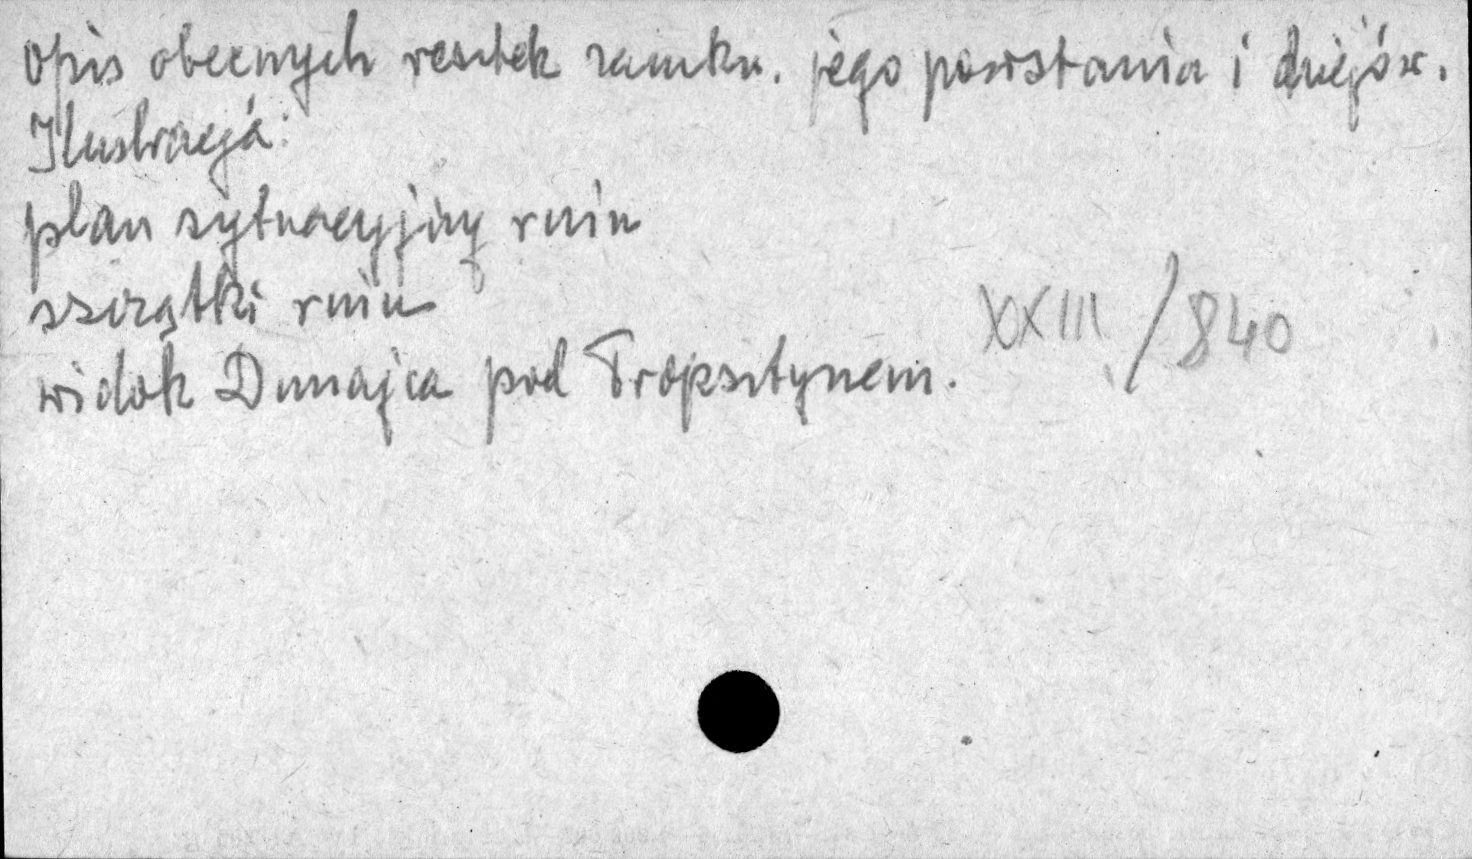 Opis obecnych resztek zamku. jego powstania i dziejów.
Ilustracja:
plan sytuacyjny ruin
szczątki ruin
widok Dunajca pod Tropsztynem.
XXIII/840